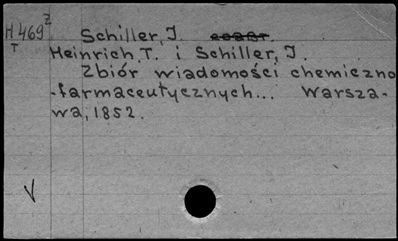 H 469 z
T
Schiller, J.
Heinrich, T. i Schiller, J.
Zbiór wiadomości chemiczno
-farmaceutycznych... Warsza-
wa, 1852.
V